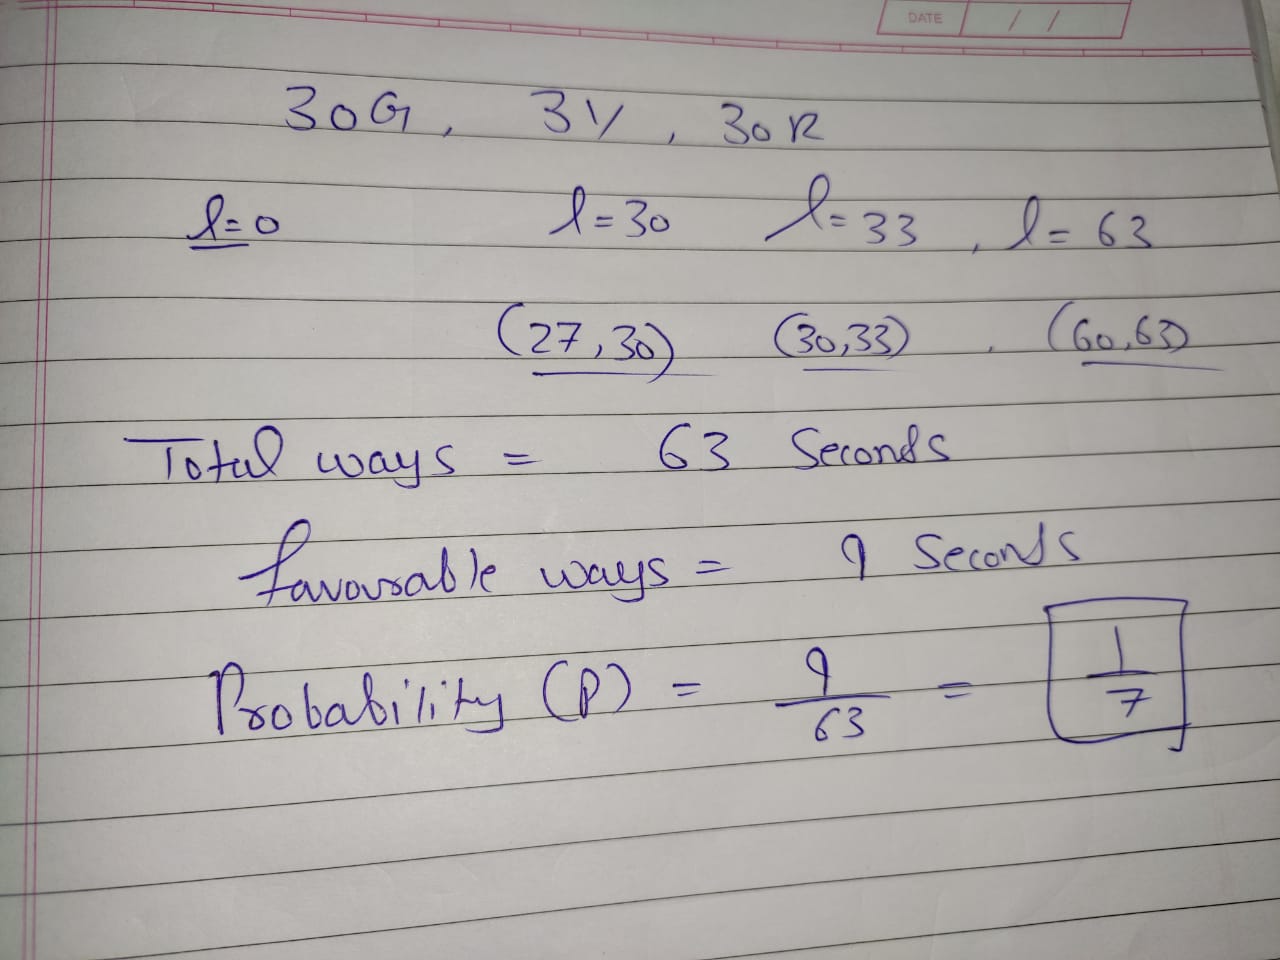 DATE / /
30G, 3Y, 30R
l=0 l=30 l=33, l=63
(27,30) (30,33), (60,63)
Total ways = 63 Seconds
favourable ways = 9 Seconds
Probability (P) = 9/63 = 1/7